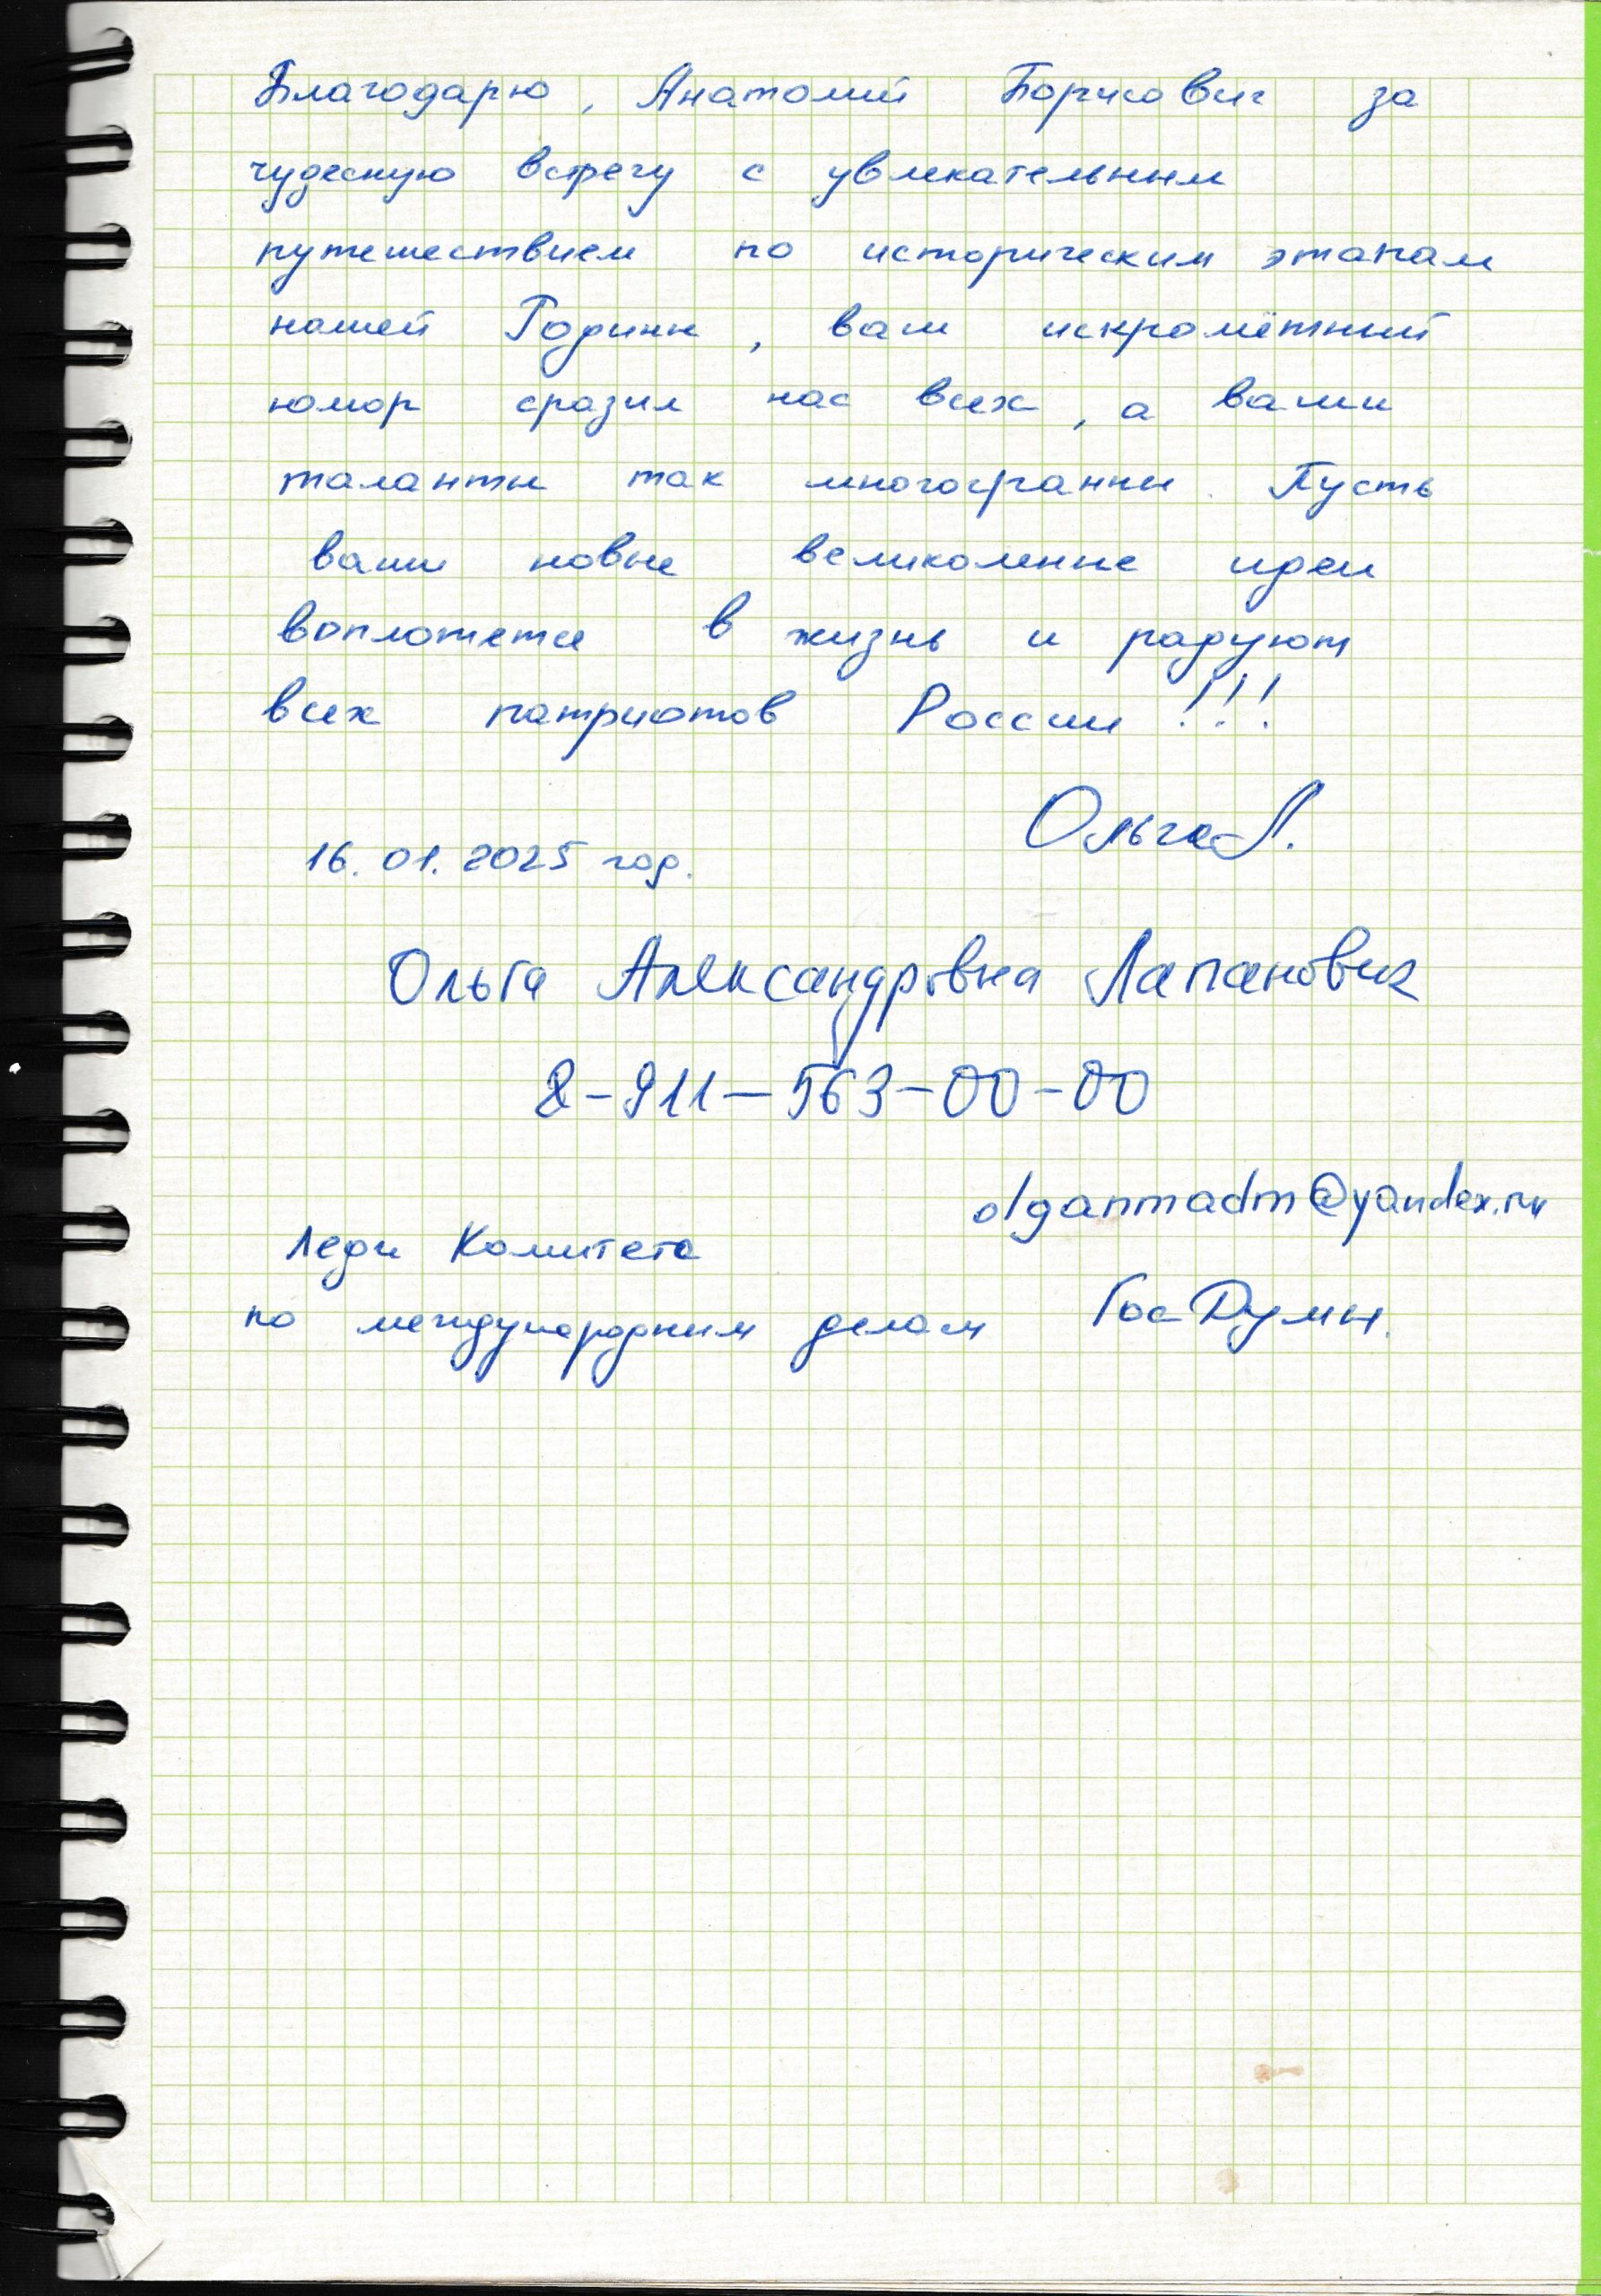 Благодарю, Анатолий Борисович за
чудесную встречу с увлекательным
путешествием по историческим этапам
нашей Родины, ваш искромётный
юмор сразил нас всех, а ваши
таланты так многогранны. Пусть
ваши новые великолепные идеи
воплотятся в жизнь и радуют
всех патриотов России!!!
Ольга Л.
16.01.2025 год.
Ольга Александровна Лапанович
8-911-563-00-00
olganmadm@yandex.ru
Леди Комитета
по международным делам ГосДумы.